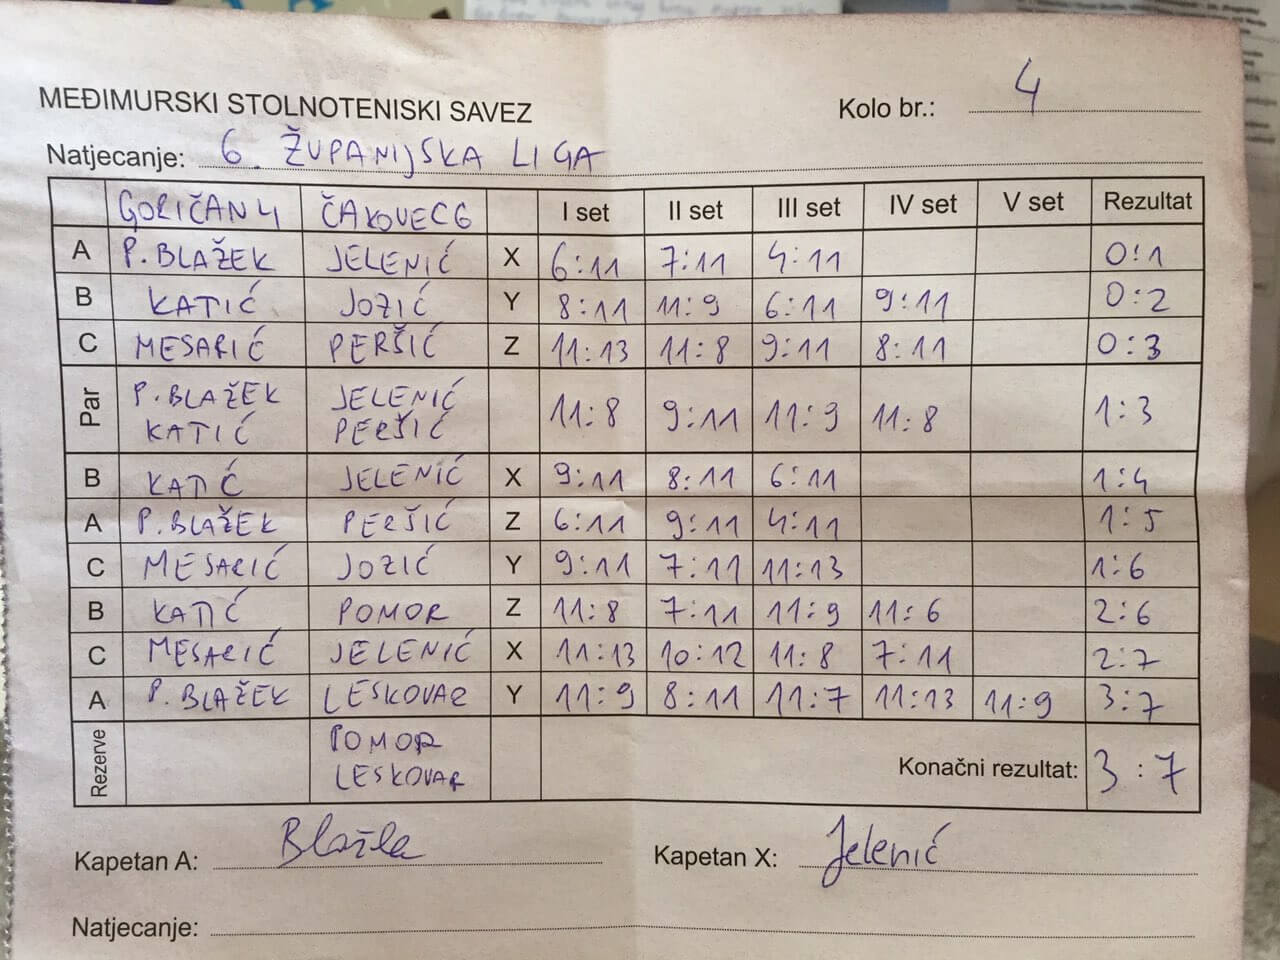 MEĐIMURSKI STOLNOTENISKI SAVEZ
Kolo br.: 4
Natjecanje: 6. ŽUPANIJSKA LIGA
GORIČAN 4 ČAKOVEC 6 I set II set III set IV set V set Rezultat
A P. BLAŽEK JELENIĆ X 6:11 7:11 4:11 0:1
B KATIĆ JOZIĆ Y 8:11 11:9 6:11 9:11 0:2
C MESARIĆ PERŠIĆ Z 11:13 11:8 9:11 8:11 0:3
Par P. BLAŽEK JELENIĆ 11:8 9:11 11:9 11:8 1:3
KATIĆ PERŠIĆ
B KATIĆ JELENIĆ X 9:11 8:11 6:11 1:4
A P. BLAŽEK PERŠIĆ Z 6:11 9:11 4:11 1:5
C MESARIĆ JOZIĆ Y 9:11 7:11 11:13 1:6
B KATIĆ POMOR Z 11:8 7:11 11:9 11:6 2:6
C MESARIĆ JELENIĆ X 11:13 10:12 11:8 7:11 2:7
A P. BLAŽEK LESKOVAR Y 11:9 8:11 11:7 11:13 11:9 3:7
Rezerve POMOR
LESKOVAR
Konačni rezultat: 3:7
Kapetan A: Kapetan X: Jelenić
Natjecanje: